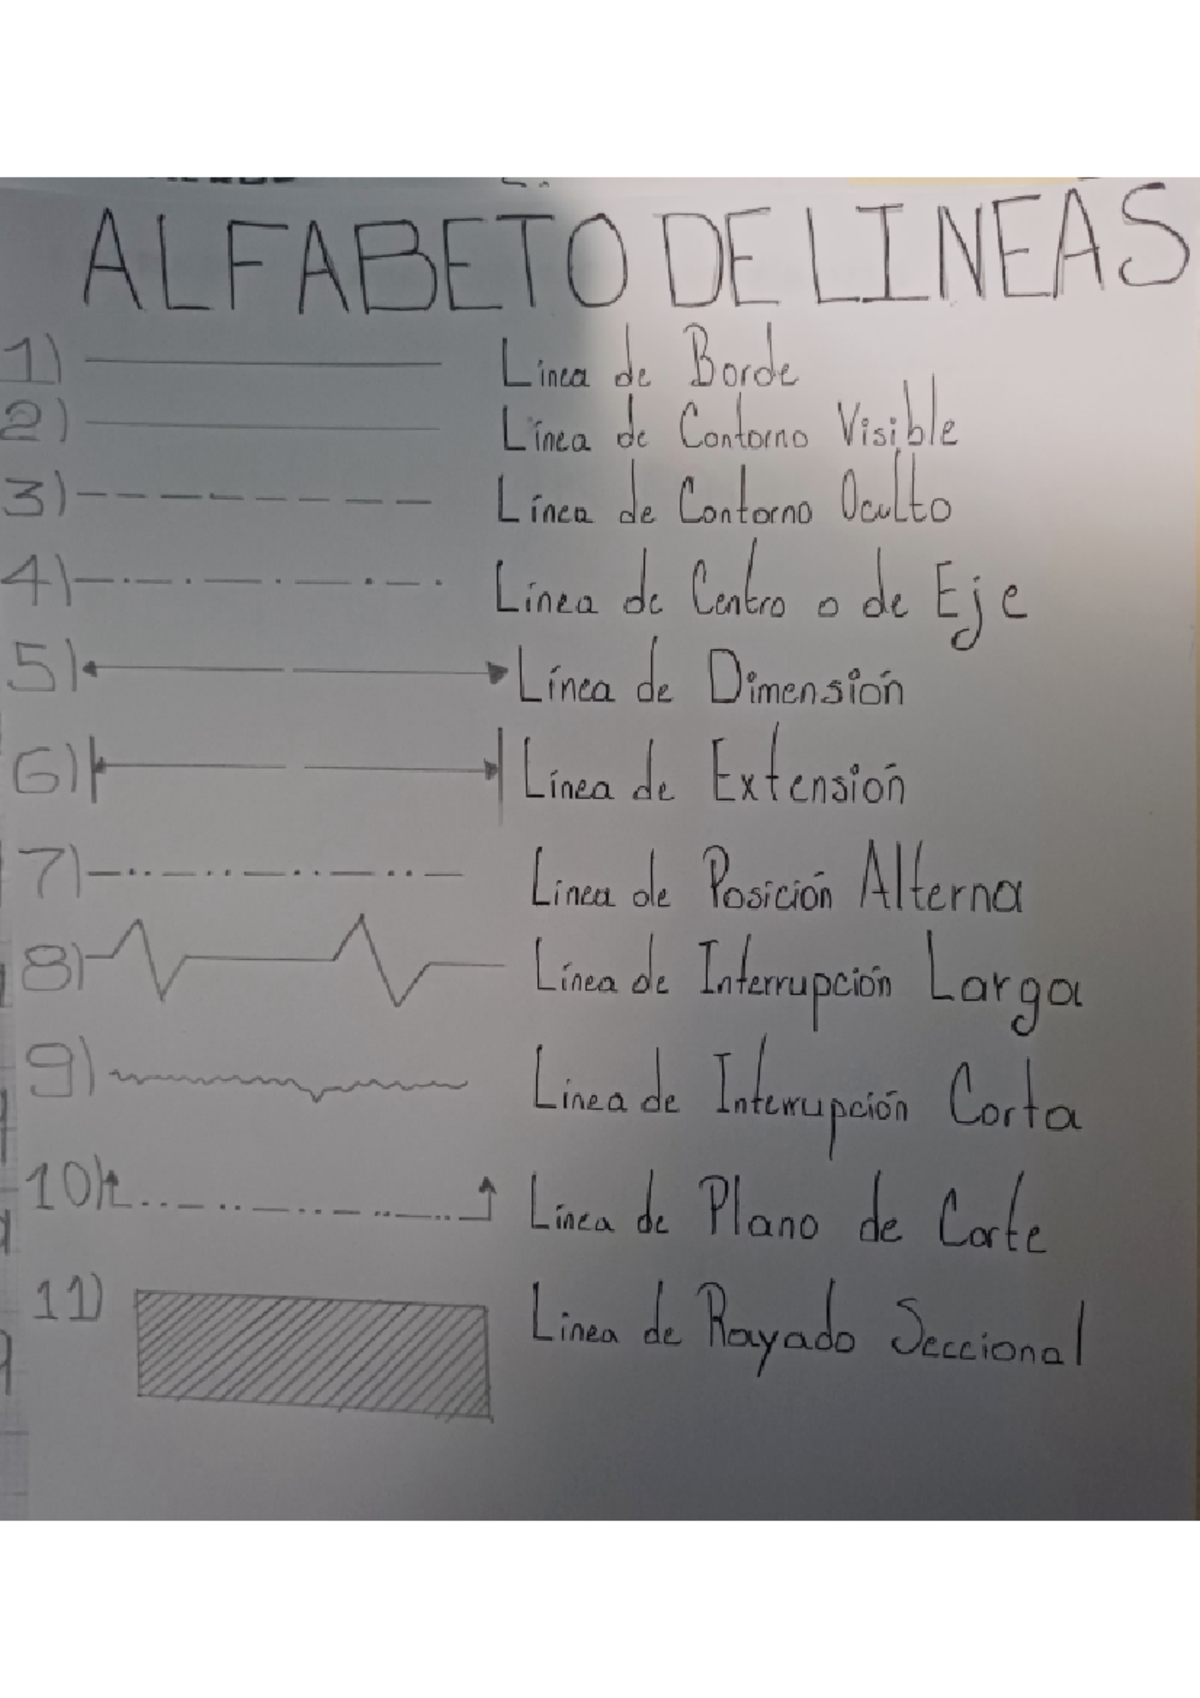 ALFABETO DE LINEAS
1) Línea de Borde
2) Línea de Contorno Visible
3) Línea de Contorno Oculto
4) Línea de Centro o de Eje
5) Línea de Dimensión
6) Línea de Extensión
7) Línea de Posición Alterna
8) Línea de Interrupción Larga
9) Línea de Interrupción Corta
10) Línea de Plano de Corte
11) Línea de Rayado Seccional